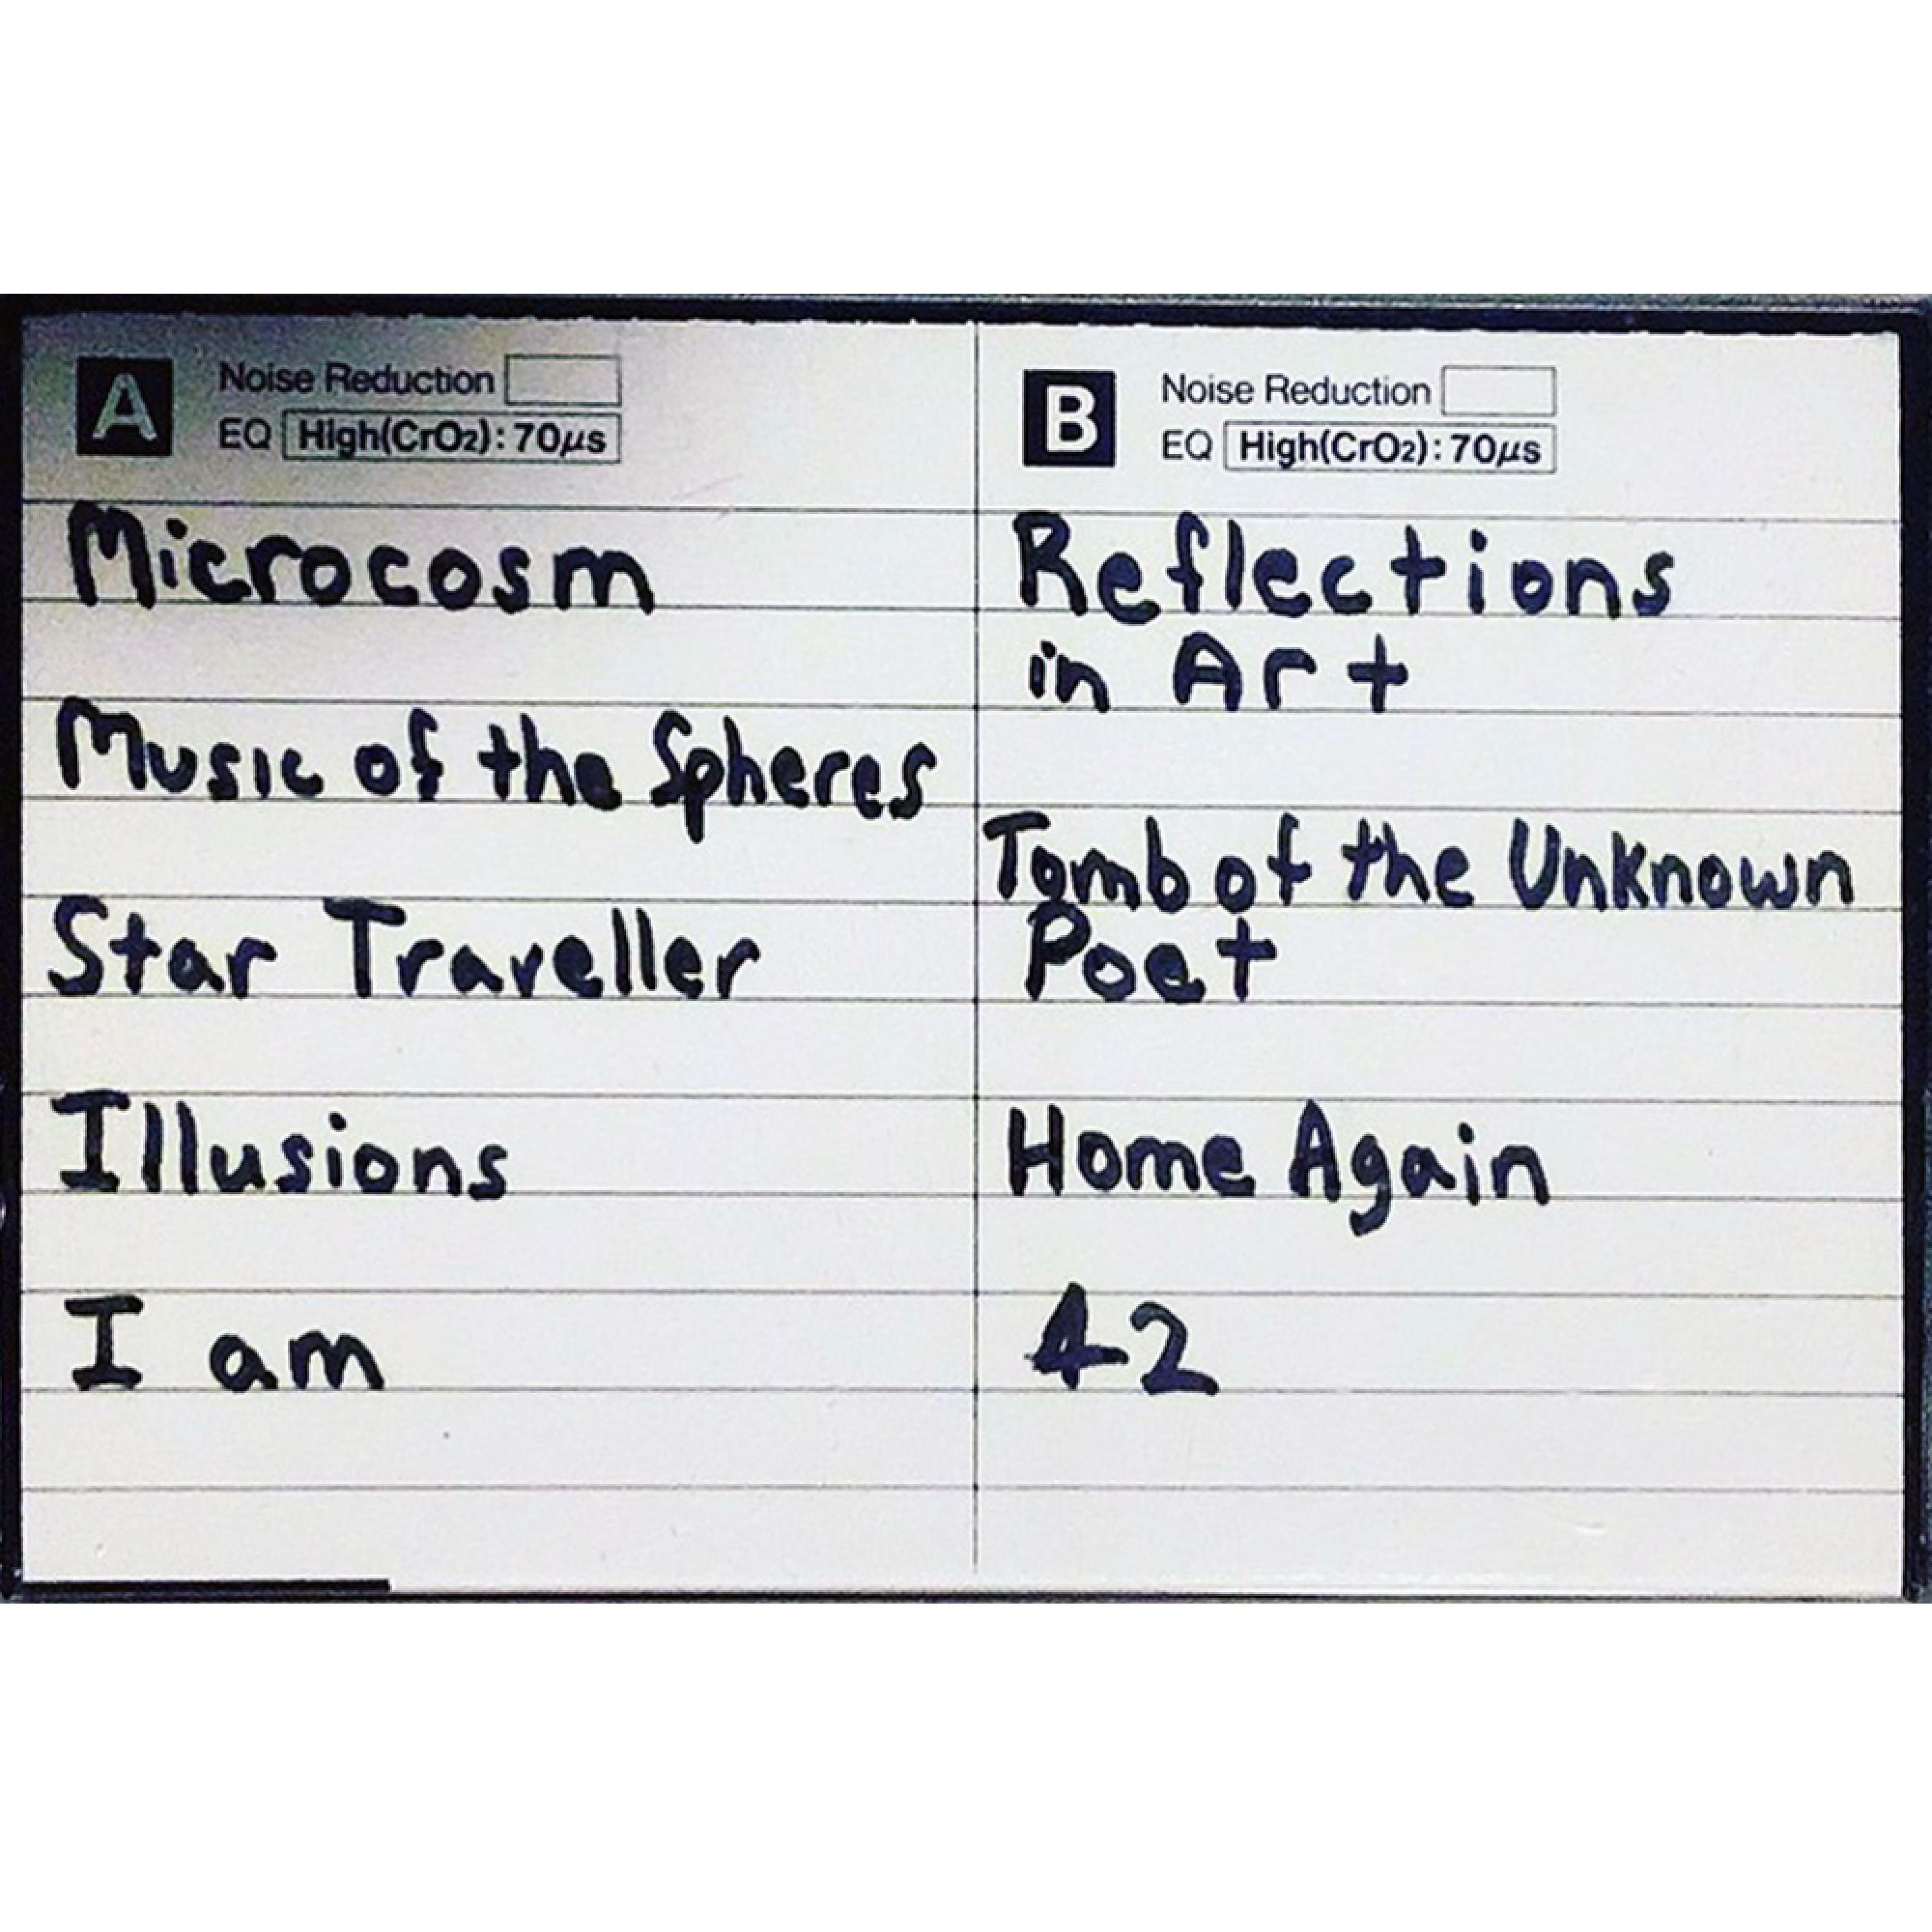 A
Noise Reduction
EQ High(CrO2): 70μs
Microcosm
Music of the Spheres
Star Traveller
Illusions
I am
B
Noise Reduction
EQ High(CrO2): 70μs
Reflections
in Art
Tomb of the Unknown
Poet
Home Again
42